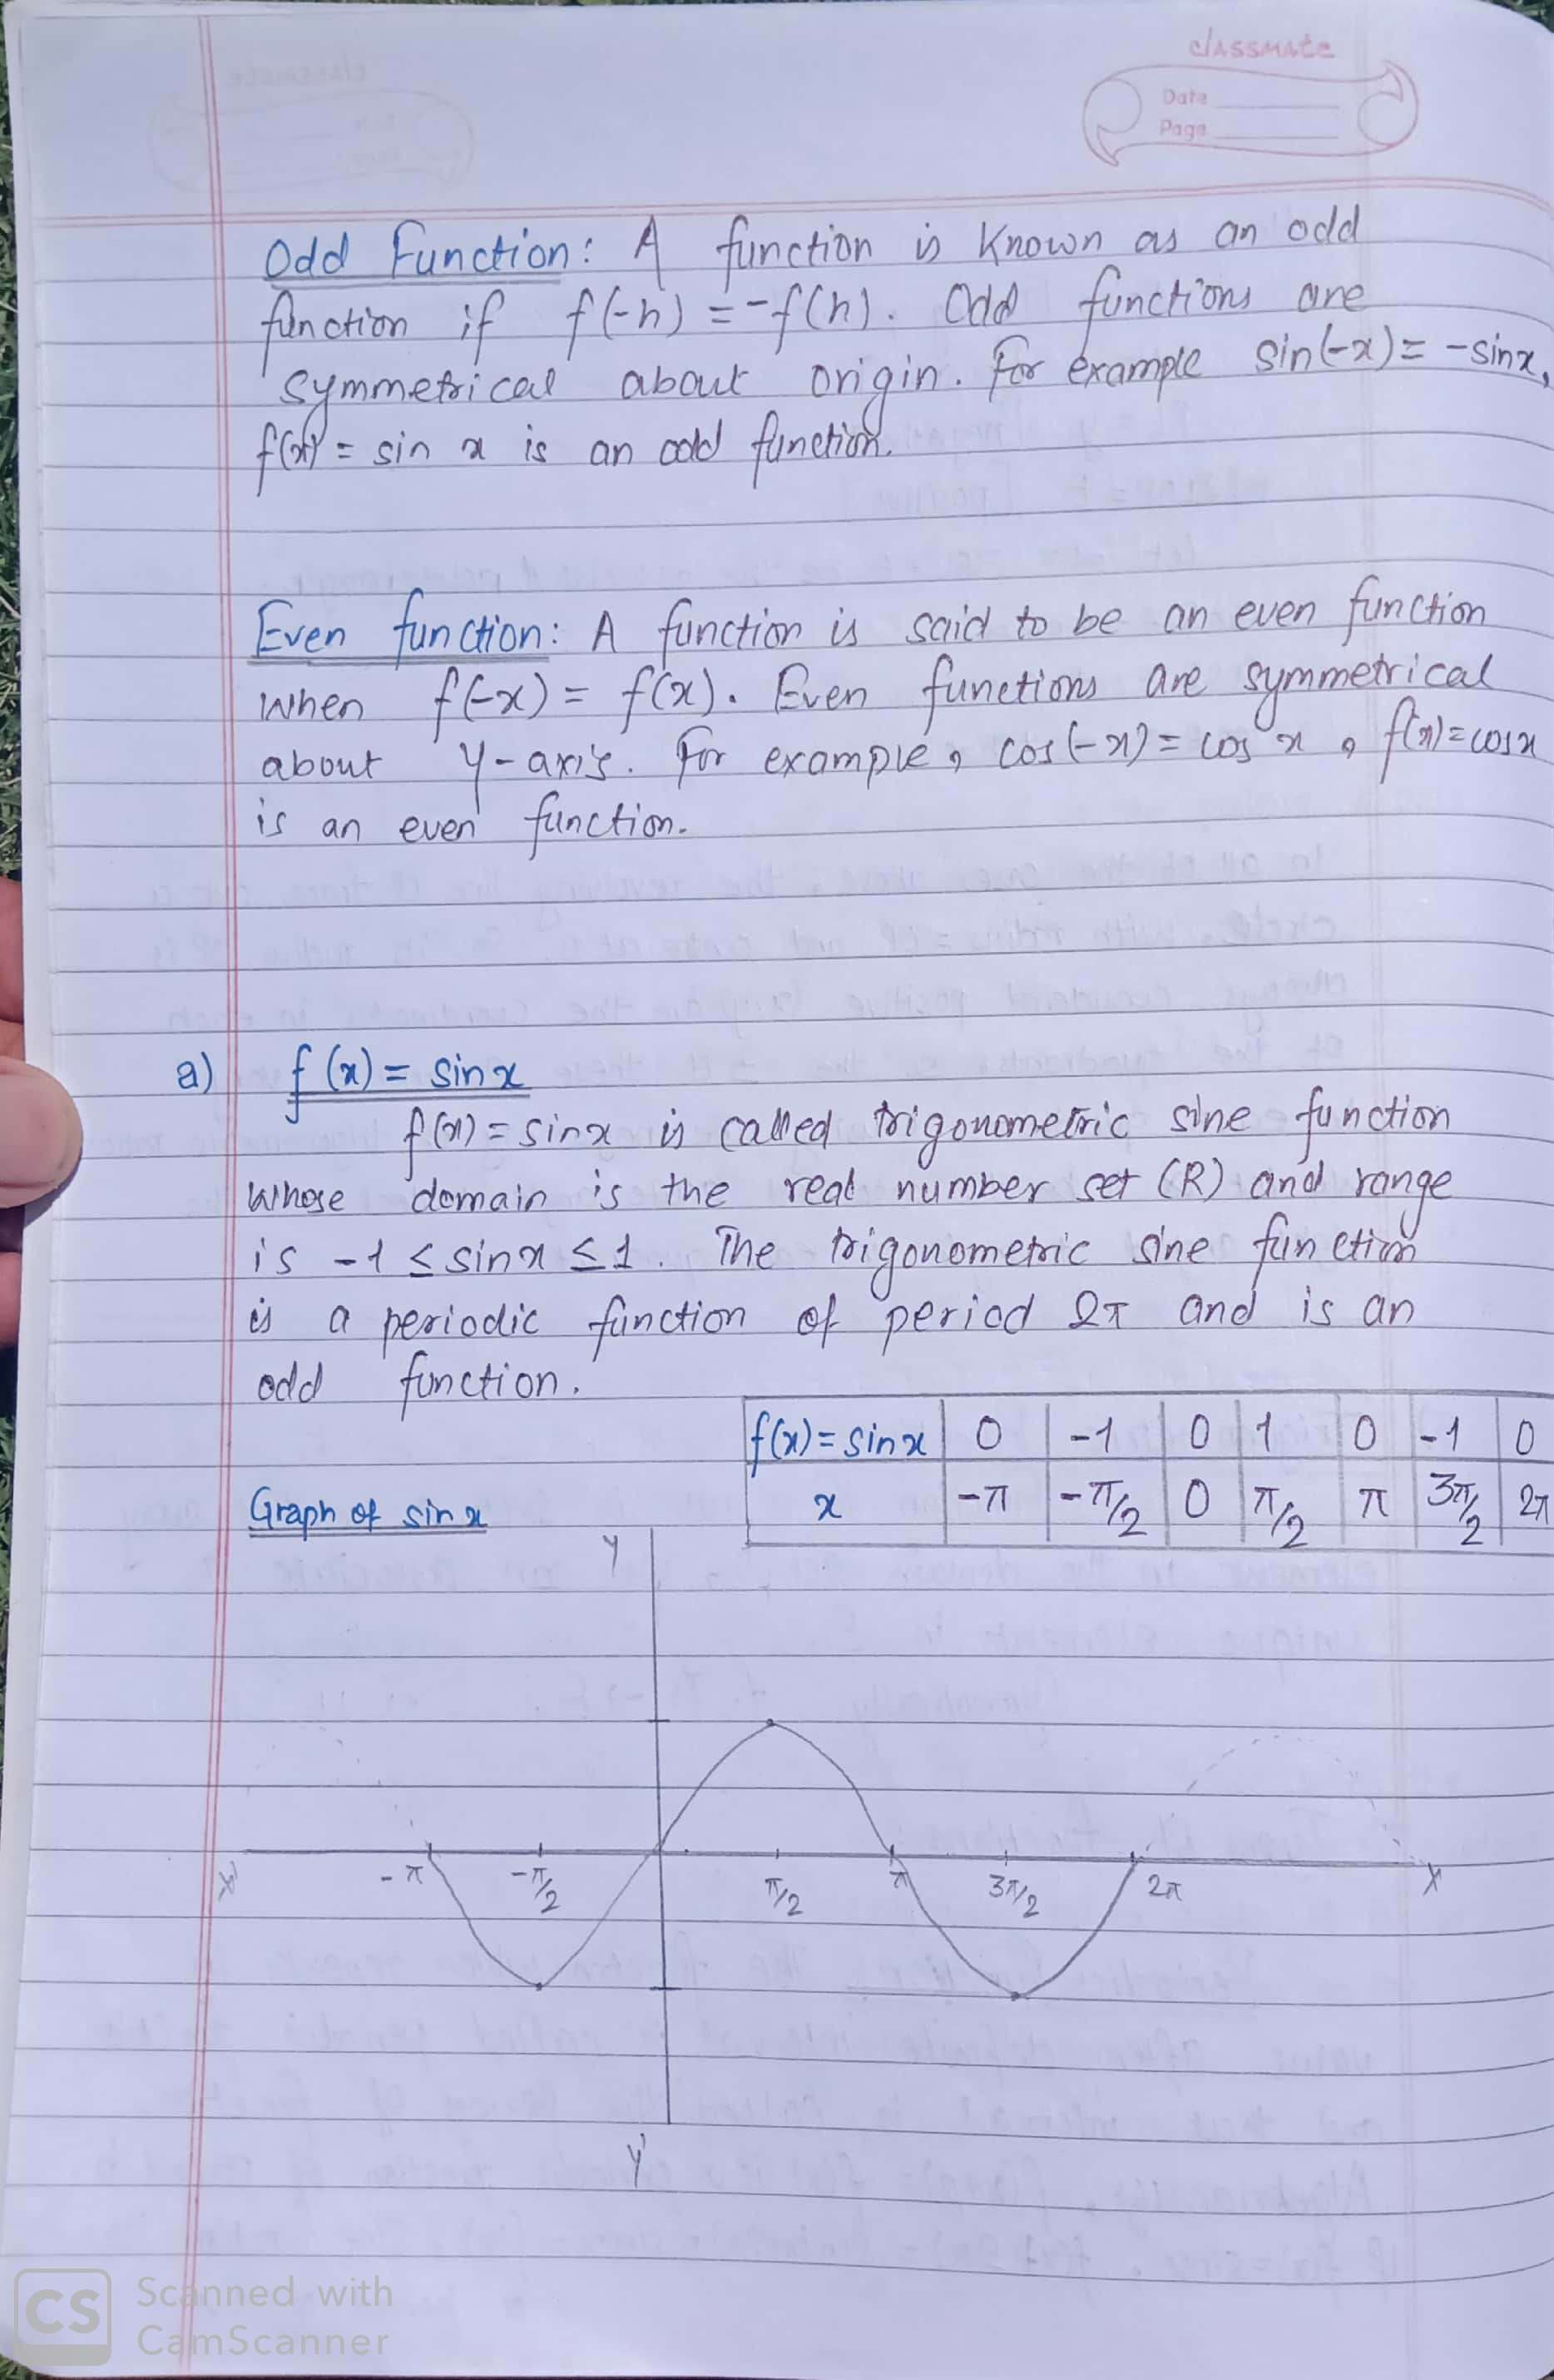 classmate
Date
Page
Odd Function: A function is known as an odd
function if f(-n) = -f(n). Odd functions are
symmetrical about origin. For example sin(-x) = -sinx,
f(x) = sin x is an odd function.
Even function: A function is said to be an even function
when f(-x) = f(x). Even functions are symmetrical
about y-axis. For example, cos(-x) = cos x, f(x) = cosx
is an even function.
a) f(x) = sinx
f(x) = sinx is called trigonometric sine function
whose domain is the real number set (R) and range
is -1 ≤ sinx ≤ 1. The trigonometric sine function
is a periodic function of period 2π and is an
odd function.
f(x) = sinx 0 -1 0 1 0 -1 0
x -π -π/2 0 π/2 π 3π/2 2π
Graph of sin x
Y
X' -π -π/2 π/2 π 3π/2 2π X
Y'
CS Scanned with
CamScanner